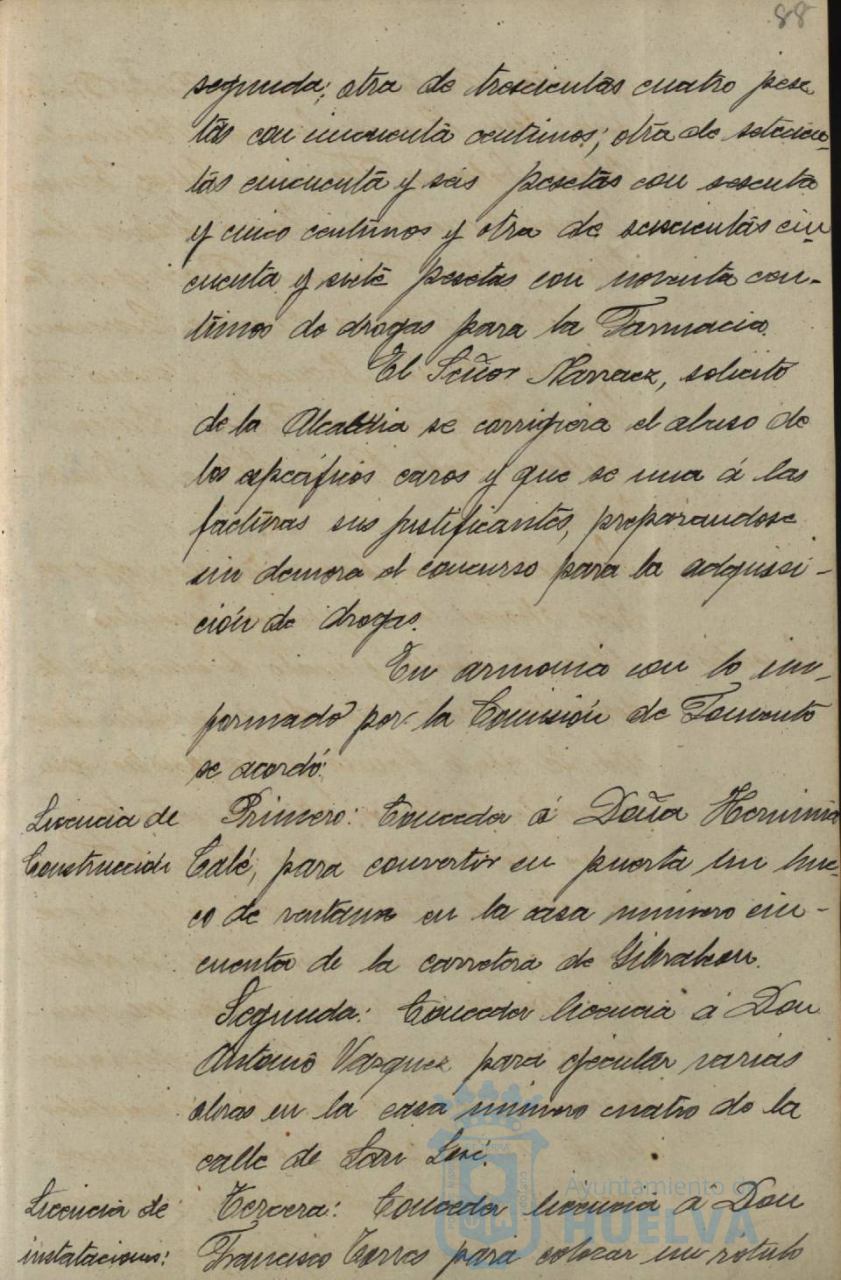 88
segunda; otra de trescientas cuatro pese
tas con cincuenta centimos; otra de setecien-
tas cincuenta y seis pesetas con sesenta
y cinco centimos y otra de seiscientas cin
cuenta y siete pesetas con noventa cen-
timos de drogas para la Farmacia.
El Señor Narvaez, solicitó
de la Alcaldia se corrigiera el abuso de
los específicos caros y que se una á las
facturas sus justificantes, preparandose
sin demora el concurso para la adquisi-
ción de drogas.
En armonia con lo in-
formado por la Comisión de Fomento
se acordó:
Licencia de
Construcción
Primero: Conceder á Doña Herminia
Calé, para convertir en puerta un hue-
co de ventana en la casa número cin-
cuenta de la carretera de Gibraleon.
Segunda: Conceder licencia á Don
Antonio Vazquez para ejecutar varias
obras en la casa número cuatro de la
calle de San José.
Licencia de
instalaciones:
Tercera: Conceder licencia á Don
Francisco Torres para colocar un rotulo
Ayuntamiento de
HUELVA